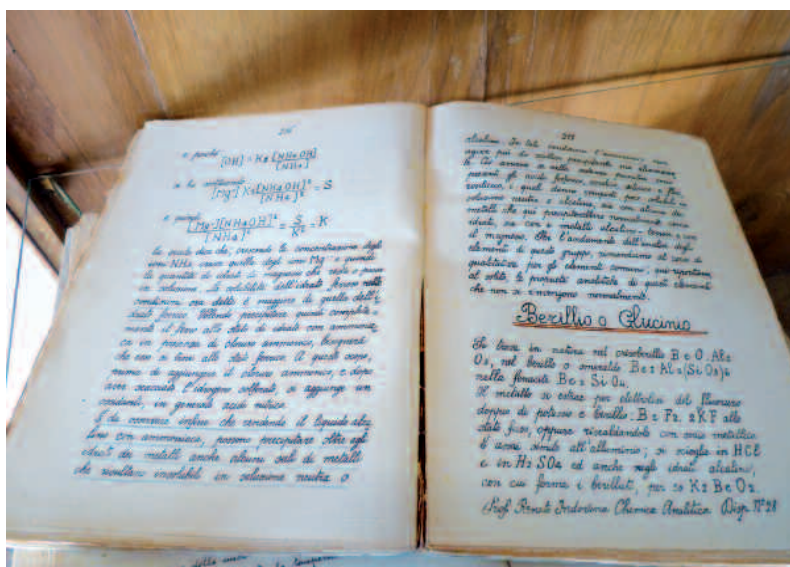 e poichè
[OH] = K₂ [NH₄OH] / [NH₄]
si ha
[Mg··] K₂ [NH₄OH]² / [NH₄]² = S
e quindi
[Mg··][NH₄OH]² / [NH₄]² = S / K² = K
la quale dice che, crescendo la concentrazione degli
ioni NH₄ cresce quella degli ioni Mg·· e quindi
la quantità di idrato di magnesio che resta o passa
in soluzione. La solubilità dell'idrato ferroso nelle
condizioni ora dette è maggiore di quella dell'i-
drato ferrico. Volendo precipitare quindi completa-
mente il ferro allo stato di idrato con ammonia-
ca in presenza di cloruro ammonico, bisognerà
che esso si trovi allo stato ferrico. A questo scopo,
prima di aggiungere il cloruro ammonico, e dopo
aver scacciato l'idrogeno solforato, si aggiunge un
ossidante, in generale acido nitrico.
È da osservare infine che rendendo il liquido alca-
lino con ammoniaca, possono precipitare oltre agli
idrati dei metalli anche alcuni sali di metalli
che risultano insolubili in soluzione neutra o
alcalina. In tali condizioni l'ammoniaca non
agisce più da reattivo precipitante ma
Ciò avviene se nella sostanza primitiva sono
presenti gli acidi fosforico, ossalico, silicico e fluo-
ridrico, i quali danno composti poco solubili in
soluzione neutra o alcalina, sia con alcuni dei
metalli che qui precipiterebbero normalmente come
idrati, sia con i metalli alcalino-terrosi e con
il magnesio. Per l'andamento dell'analisi degli
elementi di questo gruppo, rimandiamo al corso di
qualitativa per gli elementi comuni; qui riportiamo
al solito le proprietà analitiche di quegli elementi
che non si rinvengono normalmente.
Berillio o Glucinio
Si trova in natura nel crisoberillo BeO.Al₂
O₃, nel berillo o smeraldo Be₃Al₂(SiO₃)₆
nella fenacite Be₂SiO₄.
Il metallo si estrae per elettrolisi del fluoruro
doppio di potassio e berillio BeF₂.2KF allo
stato fuso, oppure riscaldandolo con sodio metallico.
È assai simile all'alluminio; si scioglie in HCl
e in H₂SO₄ ed anche negli idrati alcalini,
con cui forma i berillati, per es K₂BeO₂.
Prof. Renato Indovina Chimica Analitica Disp. N°28